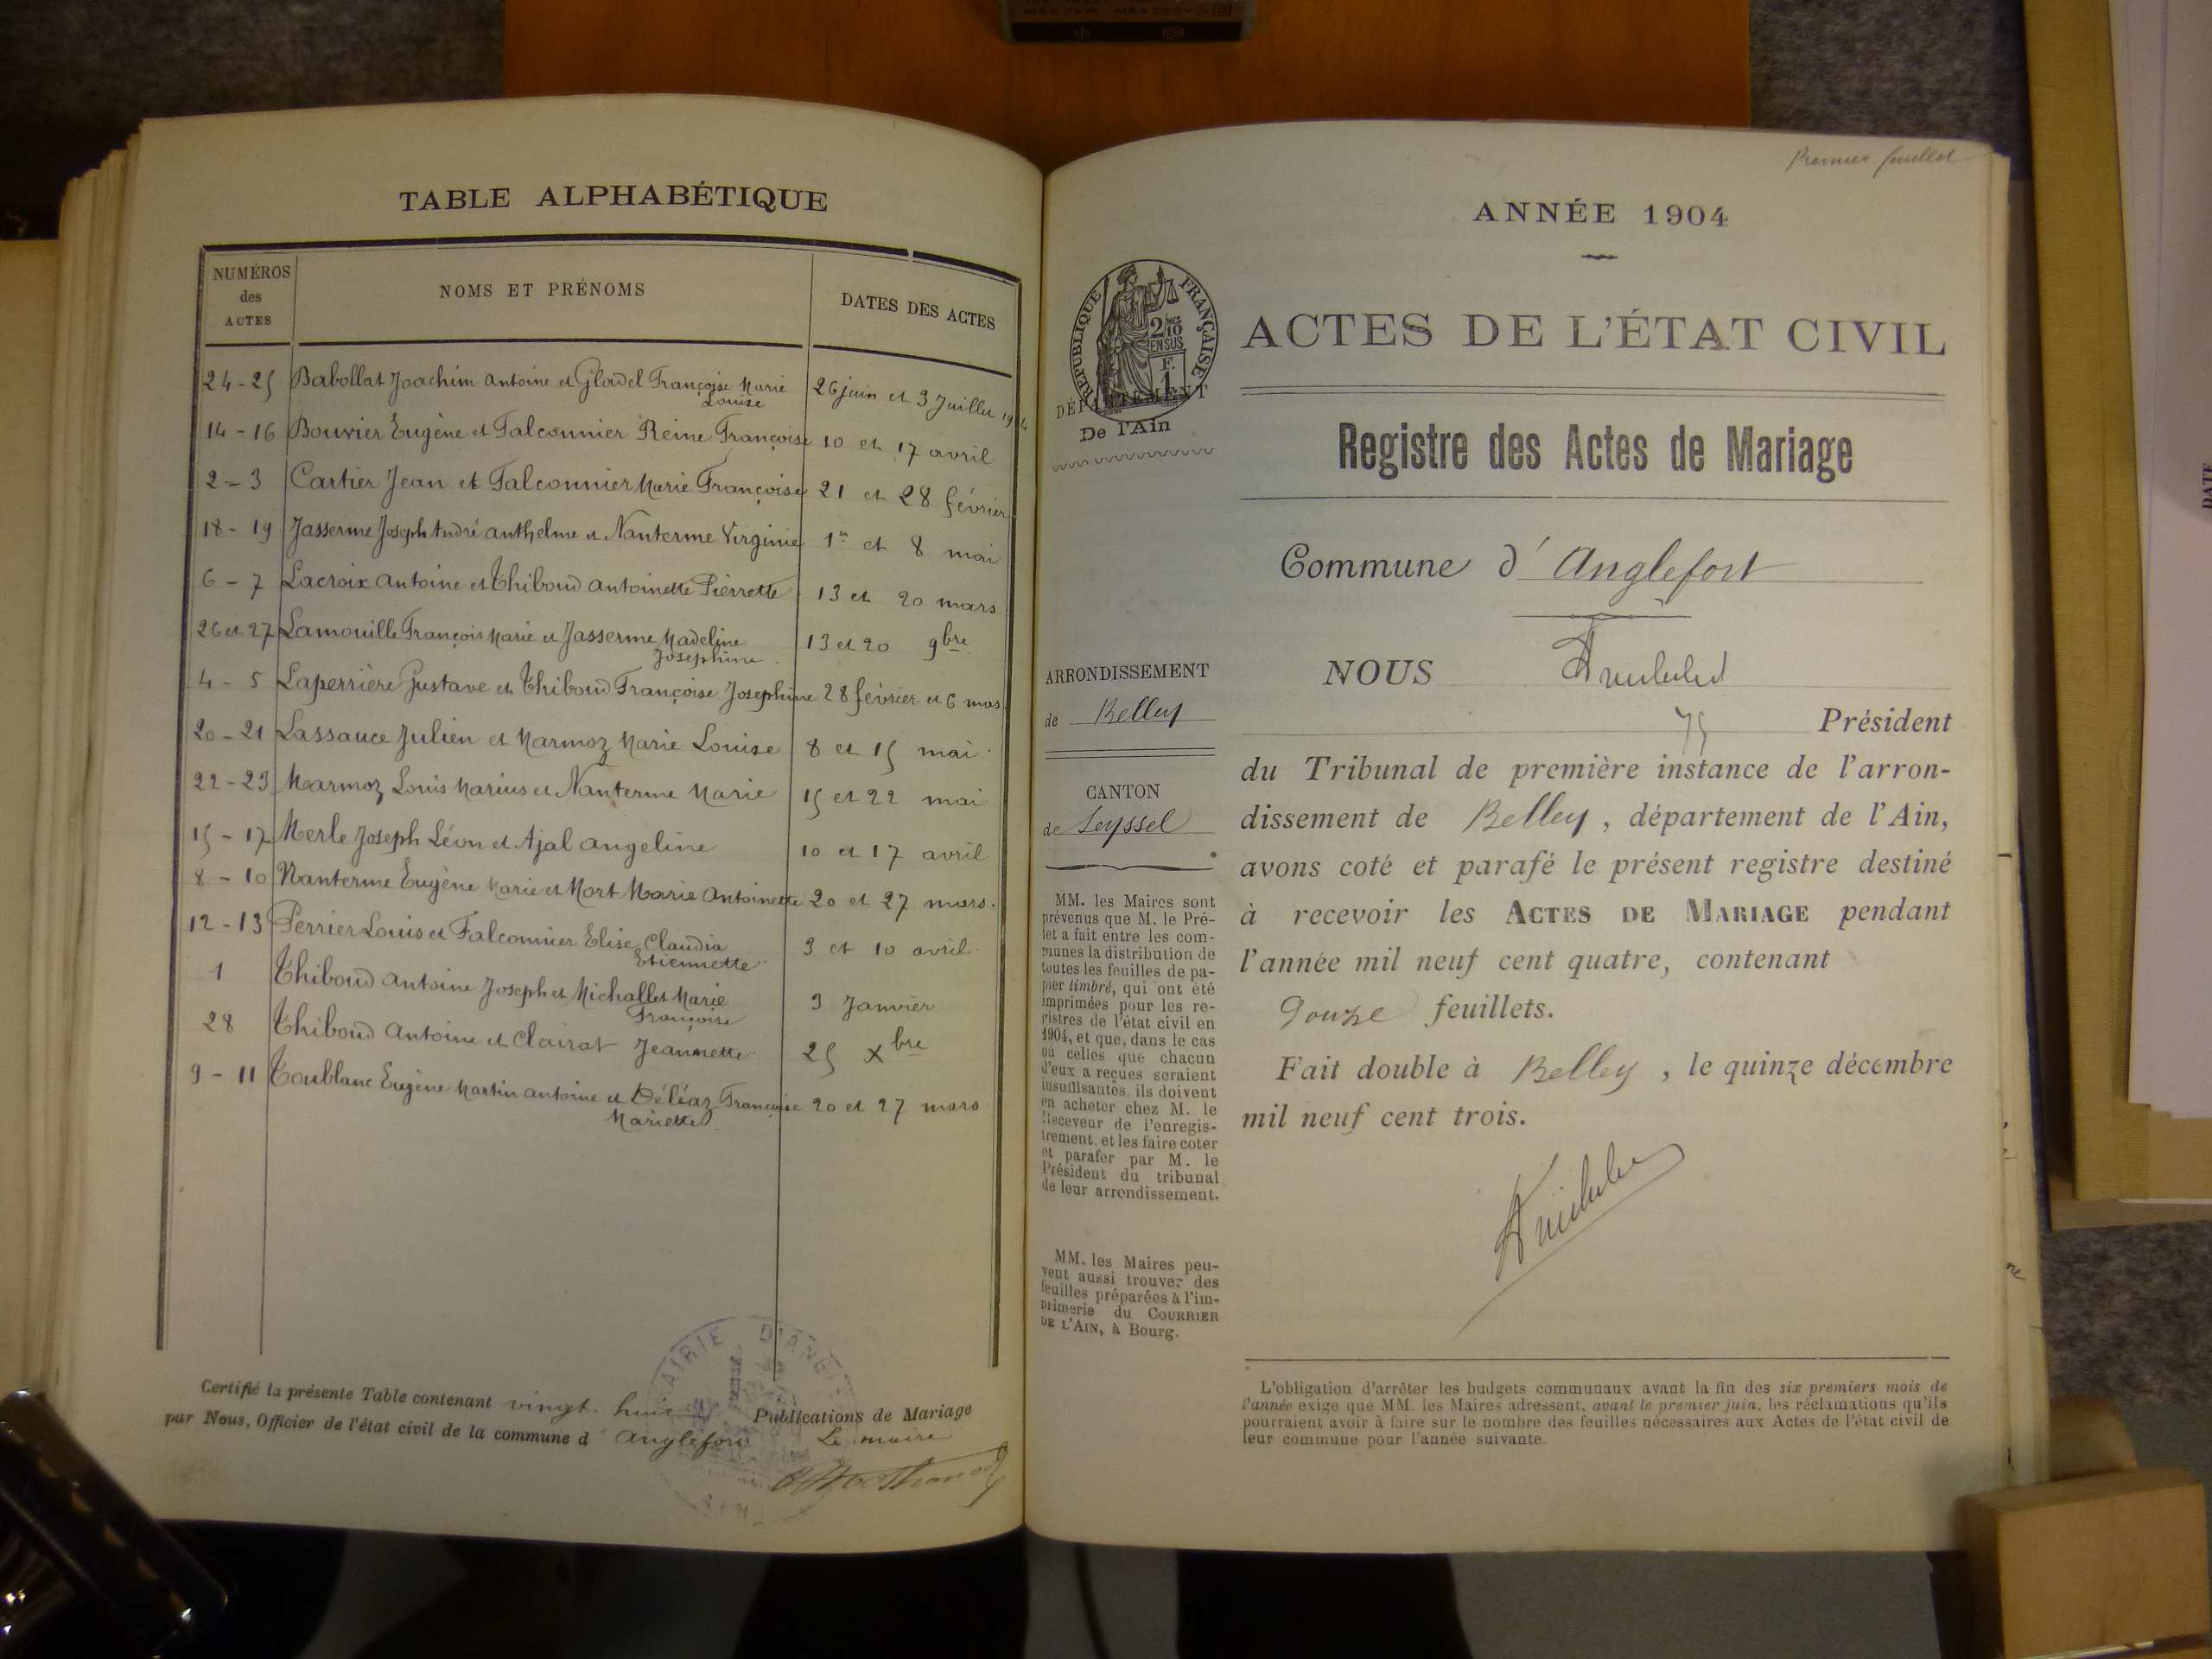 TABLE ALPHABÉTIQUE
NUMÉROS
des
ACTES
NOMS ET PRÉNOMS
DATES DES ACTES
24-25 Babollat Joachim Antoine et Françoise Marie 26 juin et 3 Juillet
Louise
14-16 Bouvier Eugène et Falconnier Reine Françoise 10 et 17 avril
2-3 Cartier Jean et Falconnier Marie Françoise 21 et 28 février
18-19 Jasserme Joseph André anthelme et Nanterme Virginie 1er et 8 mai
6-7 Lacroix Antoine et Thiboud Antoinette Pierrette 13 et 20 mars
26 et 27 Lamouille François Marie et Jasserme Madeline 13 et 20 9bre
Josephine
4-5 Laperrière Gustave et Thiboud Françoise Josephine 28 février et 6 mars
20-21 Lassauce Julien et Marmoz Marie Louise 8 et 15 mai
22-23 Marmoz Louis Marius et Nanterme Marie 15 et 22 mai
15-17 Merle Joseph Léon et Ajal Angeline 10 et 17 avril
8-10 Nanterme Eugène Marie et Mort Marie Antoinette 20 et 27 mars.
12-13 Perrier Louis et Falconnier Elise Claudia 3 et 10 avril
Etiennette
1 Thiboud Antoine Joseph et Michallet Marie 3 Janvier
Françoise
28 Thiboud Antoine et Clairat Jeannette 25 Xbre
9-11 Toublanc Eugène Martin Antoine et Déléaz Françoise 20 et 27 mars
Mariette
Certifié la présente Table contenant vingt-huit Publications de Mariage
par Nous, Officier de l'état civil de la commune d'Anglefort Le maire
MAIRIE D'ANGL
Premier feuillet
ANNÉE 1904
RÉPUBLIQUE FRANÇAISE
2 MES
10
EN SUS
F.
1
DÉPARTEMENT
De l'Ain
ACTES DE L'ÉTAT CIVIL
Registre des Actes de Mariage
Commune d'Anglefort
ARRONDISSEMENT
de Belley
CANTON
de Seyssel
MM. les Maires sont
prévenus que M. le Pré-
fet a fait entre les com-
munes la distribution de
toutes les feuilles de pa-
pier timbré, qui ont été
imprimées pour les re-
gistres de l'état civil en
1904, et que, dans le cas
où celles que chacun
d'eux a reçues seraient
insuffisantes, ils doivent
en acheter chez M. le
Receveur de l'enregis-
trement, et les faire coter
et parafer par M. le
Président du tribunal
de leur arrondissement.
MM. les Maires peu-
vent aussi trouver des
feuilles préparées à l'im-
primerie du COURRIER
DE L'AIN, à Bourg.
NOUS
Président
du Tribunal de première instance de l'arron-
dissement de Belley, département de l'Ain,
avons coté et parafé le présent registre destiné
à recevoir les ACTES DE MARIAGE pendant
l'année mil neuf cent quatre, contenant
Douze feuillets.
Fait double à Belley, le quinze décembre
mil neuf cent trois.
L'obligation d'arrêter les budgets communaux avant la fin des six premiers mois de
l'année exige que MM. les Maires adressent, avant le premier juin, les réclamations qu'ils
pourraient avoir à faire sur le nombre des feuilles nécessaires aux Actes de l'état civil de
leur commune pour l'année suivante.
DATE